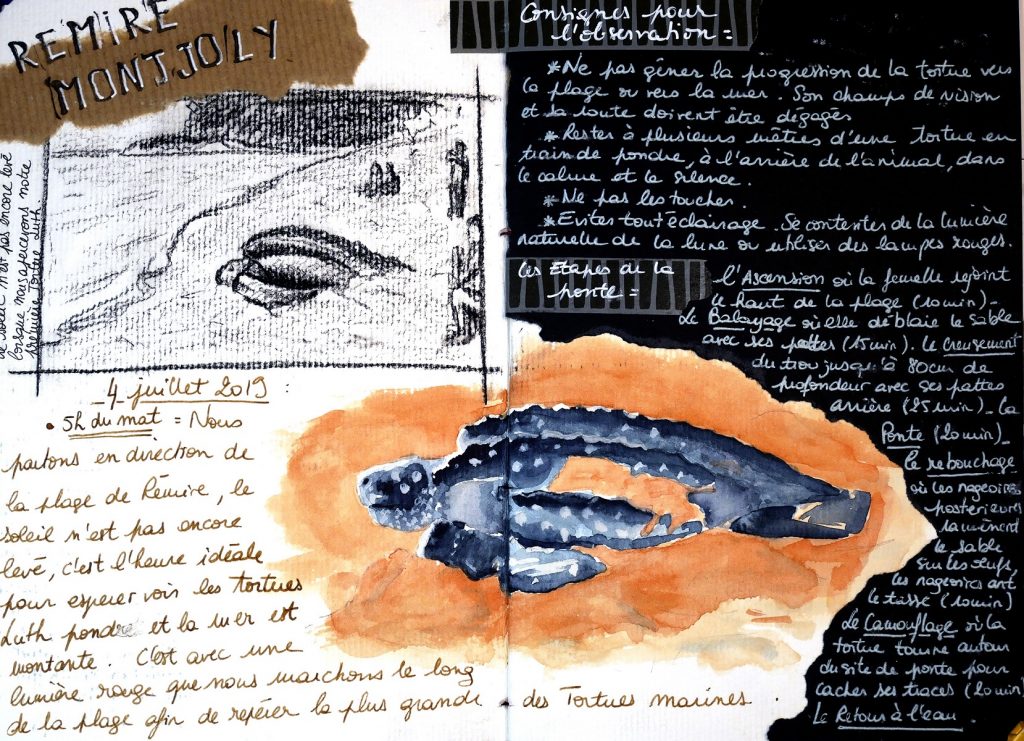 REMIRE
MONTJOLY
le soleil n'est pas encore levé
lorsque nous apercevons notre
Tortue Luth
4 juillet 2019 :
• 5h du mat = Nous
partons en direction de
la plage de Rémire, le
soleil n'est pas encore
levé, c'est l'heure idéale
pour esperer voir les tortues
Luth pondre et la mer est
montante. C'est avec une
lumière rouge que nous marchons le long
de la plage afin de repérer la plus grande des Tortues marines.
Consignes pour
l'observation =
*Ne pas gêner la progression de la tortue vers
la plage ou vers la mer. Son champs de vision
et sa route doivent être dégagés
*Rester à plusieurs mètres d'une tortue en
train de pondre, à l'arrière de l'animal, dans
le calme et le silence.
*Ne pas les toucher.
*Eviter tout éclairage. Se contenter de la lumière
naturelle de la lune ou utiliser des lampes rouges.
Les Etapes de la
ponte =
L'Ascension où la femelle rejoint
le haut de la plage (10min)_
Le Balayage où elle déblaie le sable
avec ses pattes (15min). Le Creusement
du trou jusque à 80cm de
profondeur avec ses pattes
arrière (25min)_La
Ponte (20min)_
Le rebouchage
où les nageoires
postérieures
ramènent
le sable
sur les œufs,
les nageoires ant
le tasse (10min)
Le Camouflage où la
tortue tourne autour
du site de ponte pour
cacher ses traces (20min)
Le Retour à l'eau.